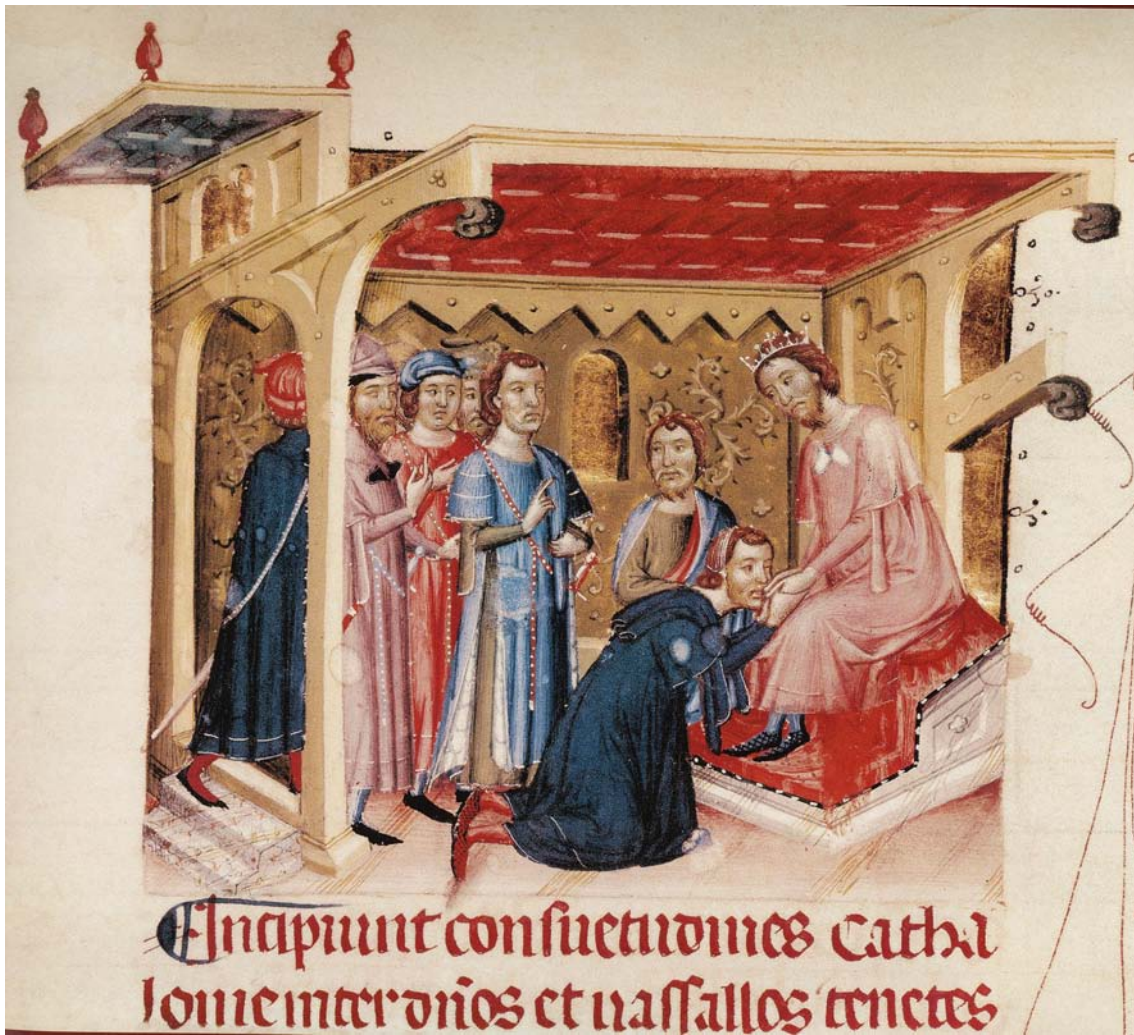 Incipiunt consuetudines Catha
lonie inter dños et vassallos tenētes